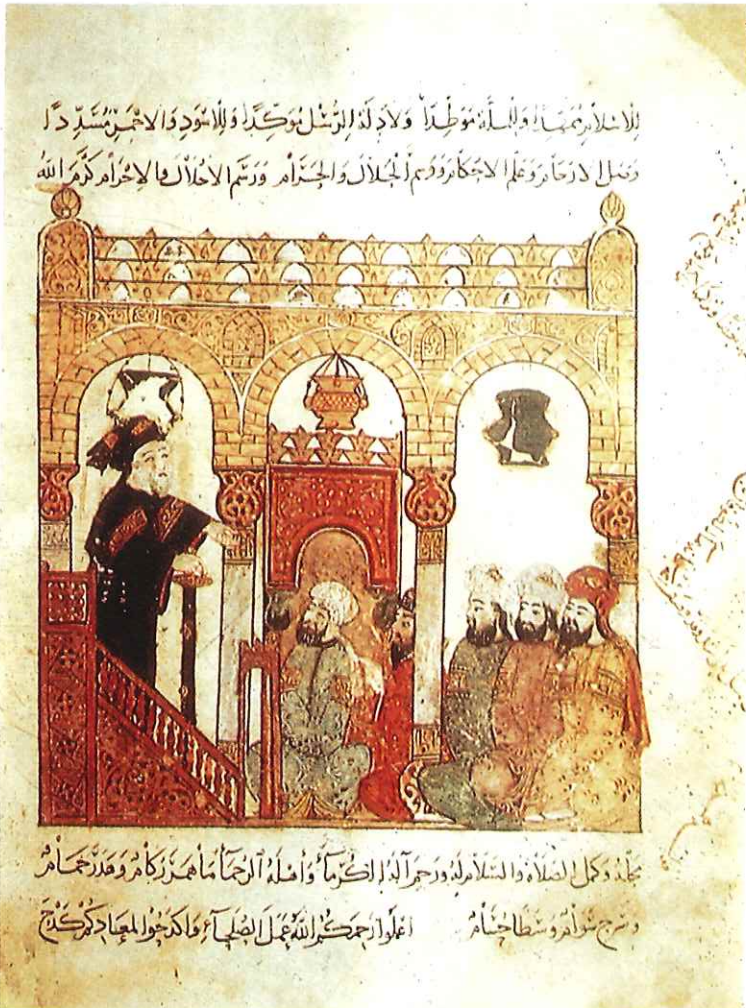 للاسلام ممهدا وللملة موطدا ولادلة الرسل موكدا وللاسود والاحمر مسددا
وصل الارحام وعلم الاحكام ووسم الحلال والحرام ورسم الاحلال والاحرام كرم الله
محله وكمل الصلاة والسلام له ورحم آله الكرماء وأهله الرحماء ما همر ركام وهدر حمام
وسرح سوام وسطا حسام اعملوا رحمكم الله عمل الصلحاء واكدحوا لمعادكم كدح